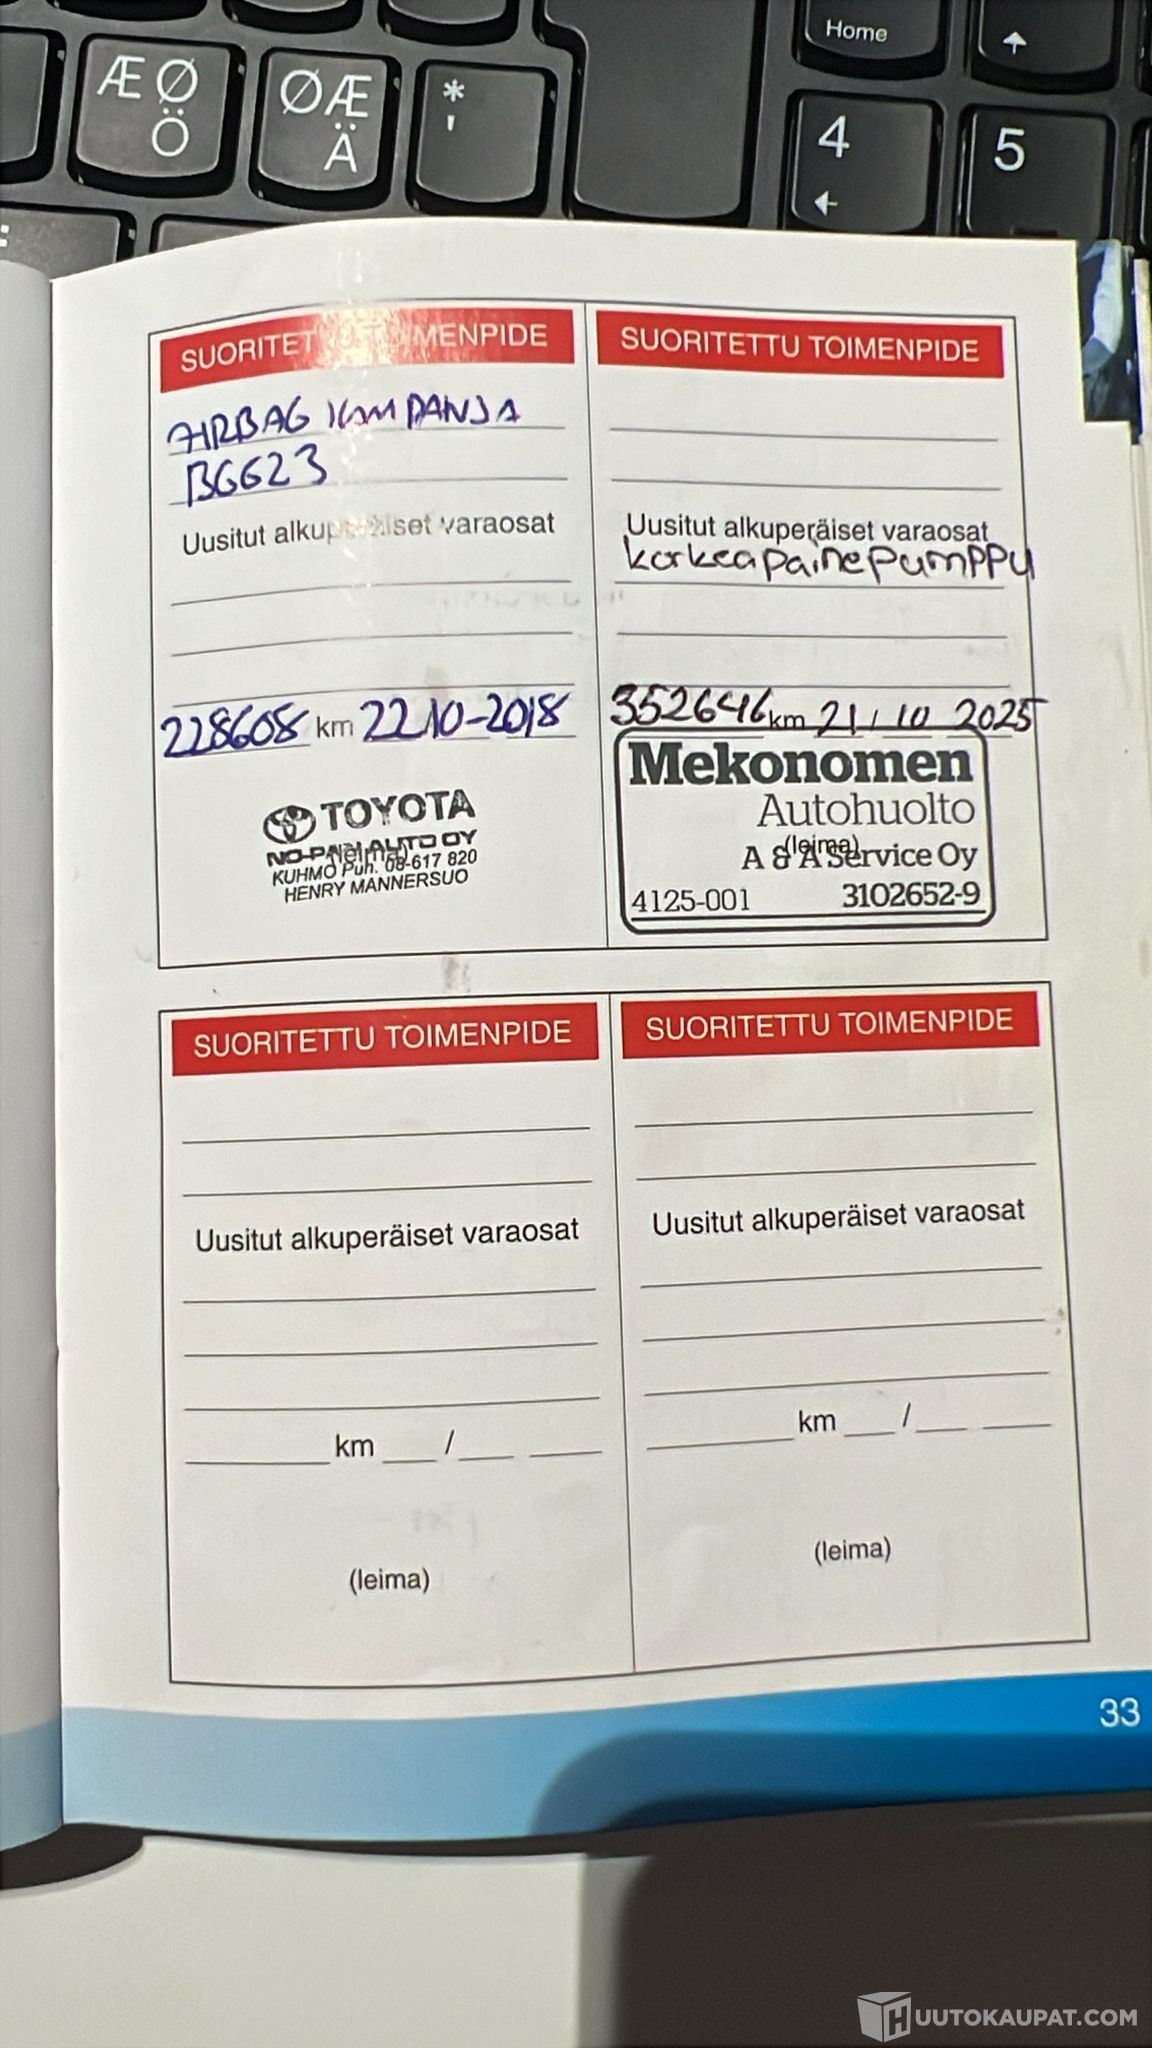 Home
Æ Ø
Ö
Ø Æ
Ä
*
'
4
5
SUORITETTU TOIMENPIDE
AIRBAG KAMPANJA
BGG23
Uusitut alkuperäiset varaosat
228608 km 22.10-2018
TOYOTA
NO-PAN AUTO OY
(leima)
KUHMO Puh. 08-617 820
HENRY MANNERSUO
SUORITETTU TOIMENPIDE
Uusitut alkuperäiset varaosat
korkeapainepumppu
352646 km 21 / 10 2025
Mekonomen
Autohuolto
(leima)
A & A Service Oy
4125-001 3102652-9
SUORITETTU TOIMENPIDE
Uusitut alkuperäiset varaosat
km /
(leima)
SUORITETTU TOIMENPIDE
Uusitut alkuperäiset varaosat
km /
(leima)
33
HUUTOKAUPAT.COM